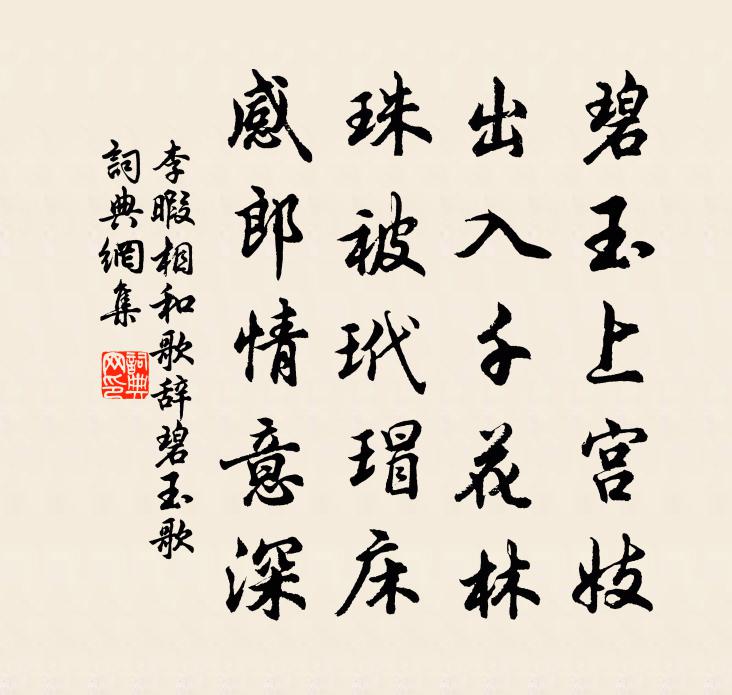 碧玉上宫妓
出入千花林
珠被玳瑁床
感郎情意深
李暇相和歌辞碧玉歌
詞典網集
詞典网印